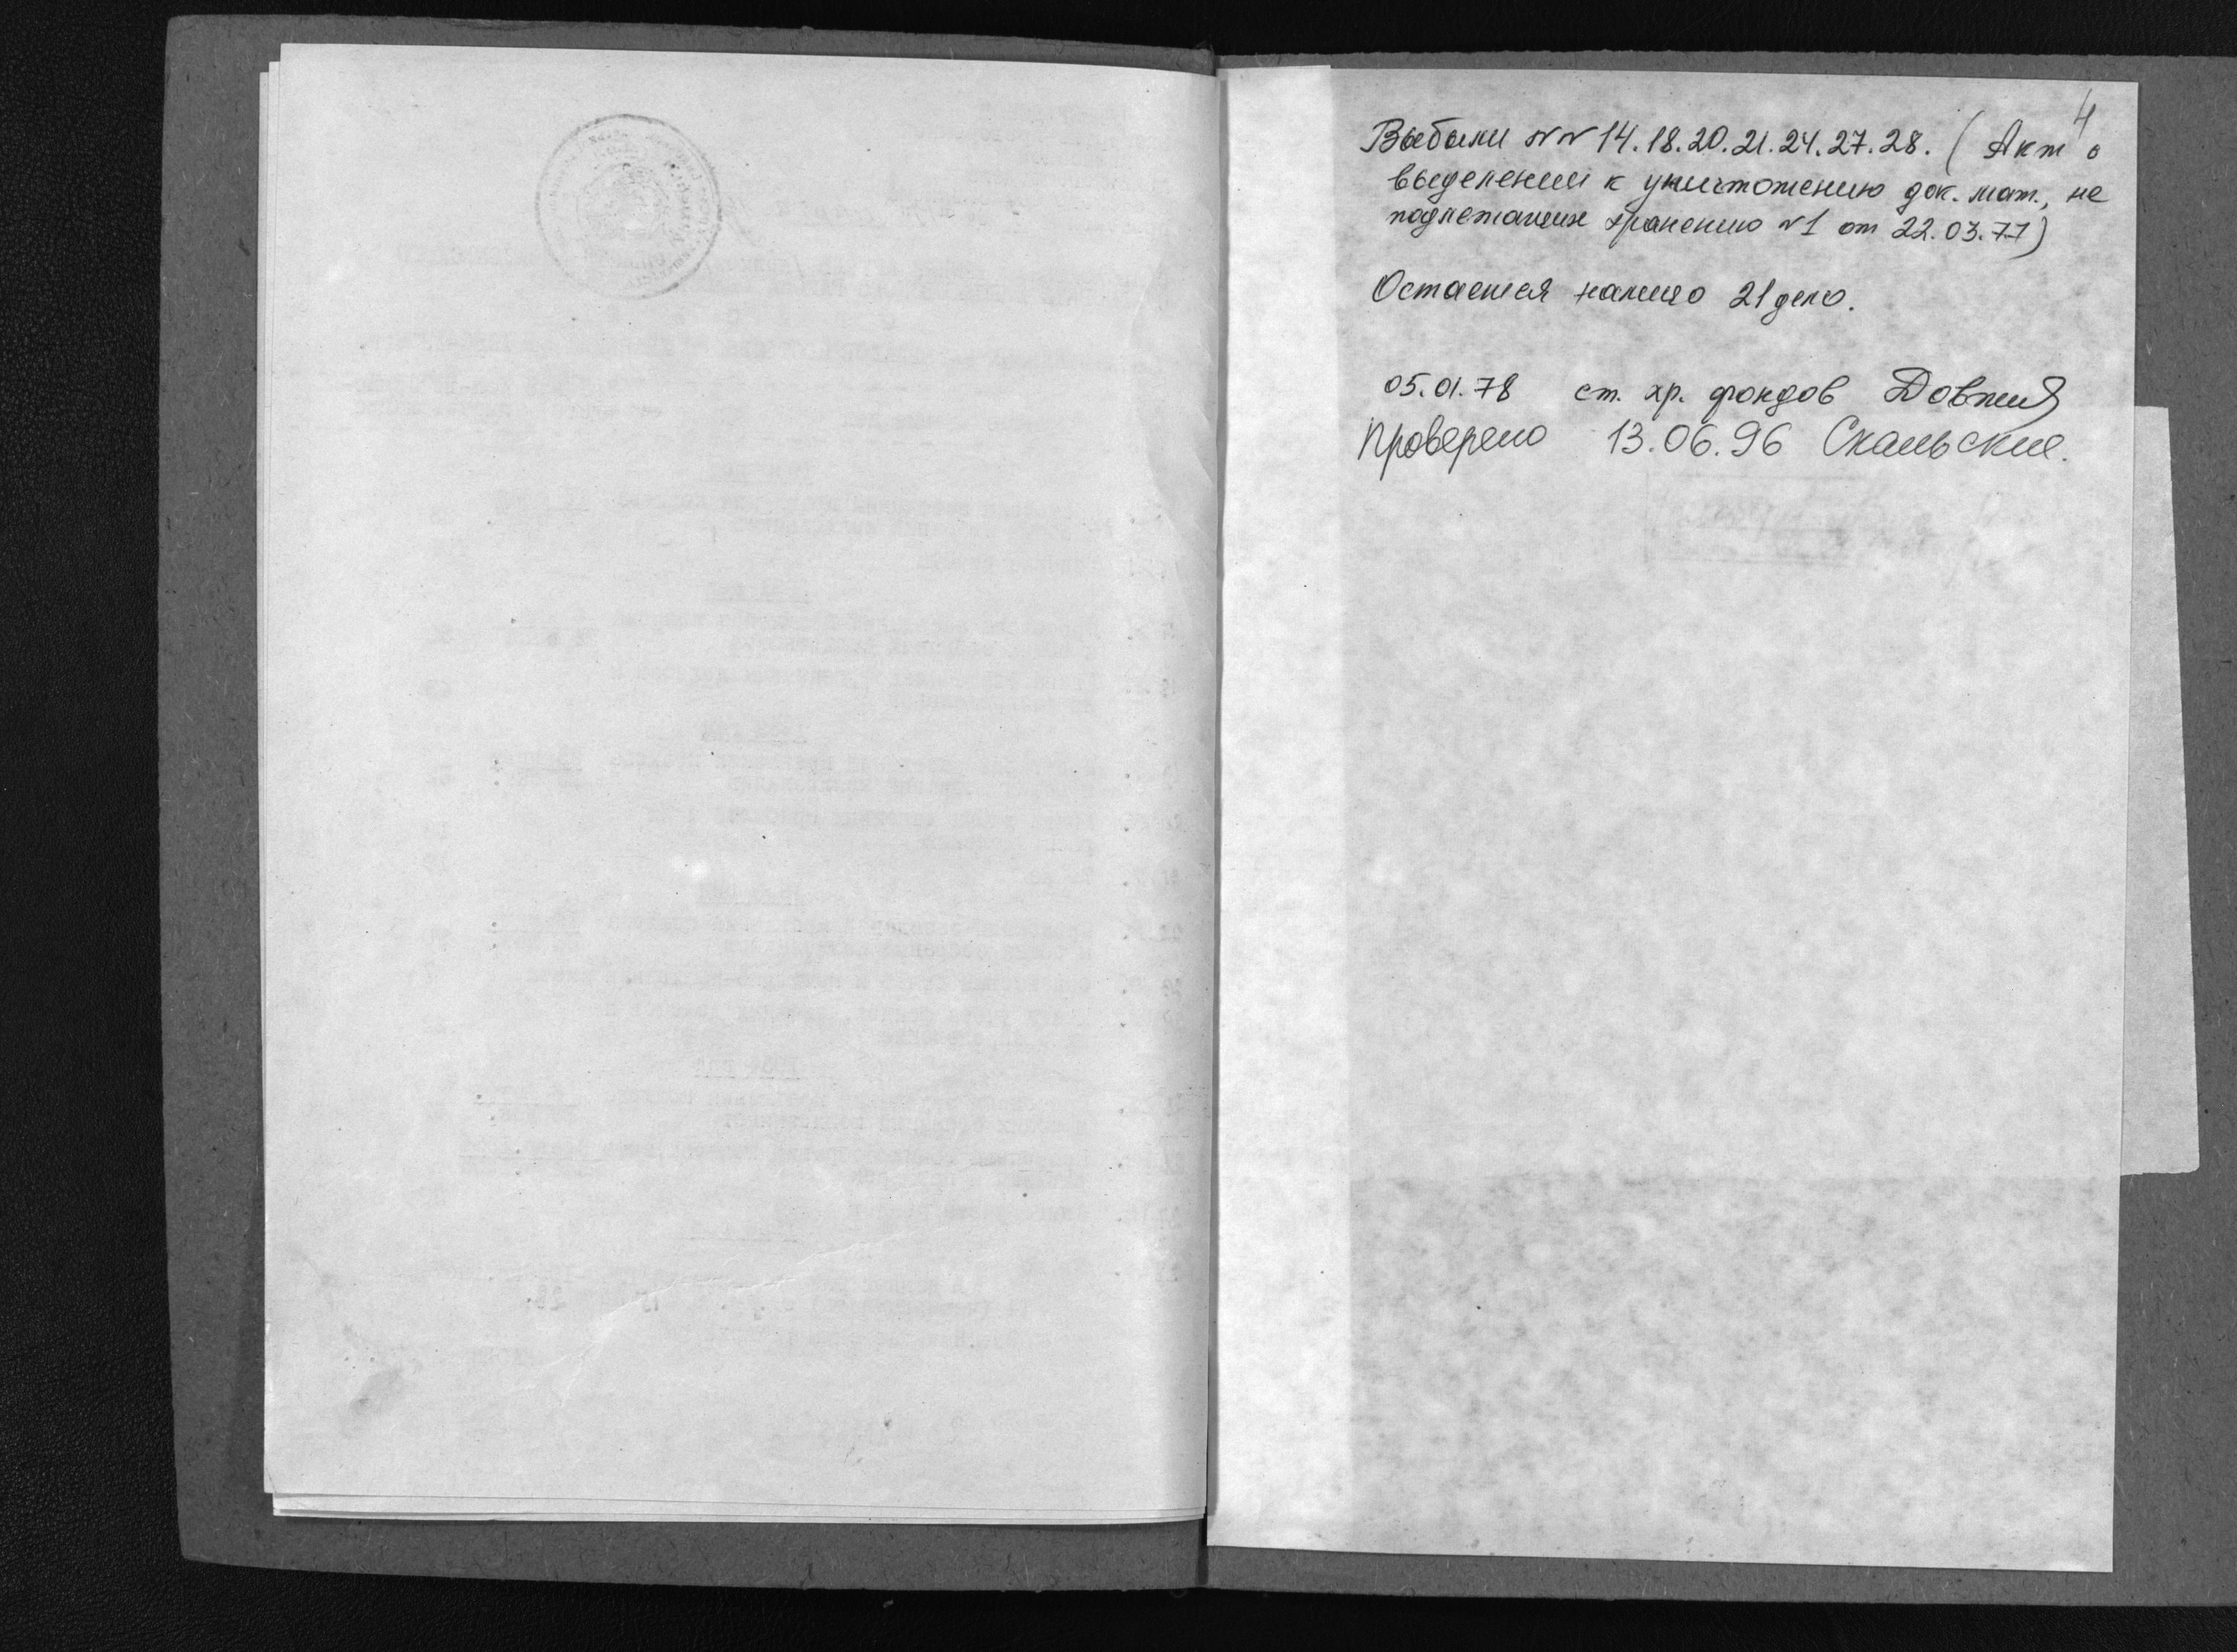 4
Выбыли №№ 14.18.20.21.24.27.28. (Акт о
выделении к уничтожению док. мат., не
подлежащих хранению №1 от 22.03.77)
Остается налицо 21 дело.
05.01.78 ст. хр. фондов
Проверено 13.06.96